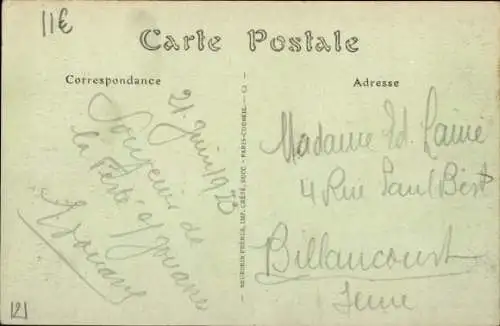 11€
Carte Postale
Correspondance
Adresse
21 Juin 1923
Souvenir de
la Ferté s/ Jouarre
Edouard
NEURDEIN FRÈRES, IMP. CRÉTÉ, SUCC - PARIS-CORBEIL - C1 -
Madame Ed. Lainé
4 Rue Paul Bert
Billancourt
Seine
[2]